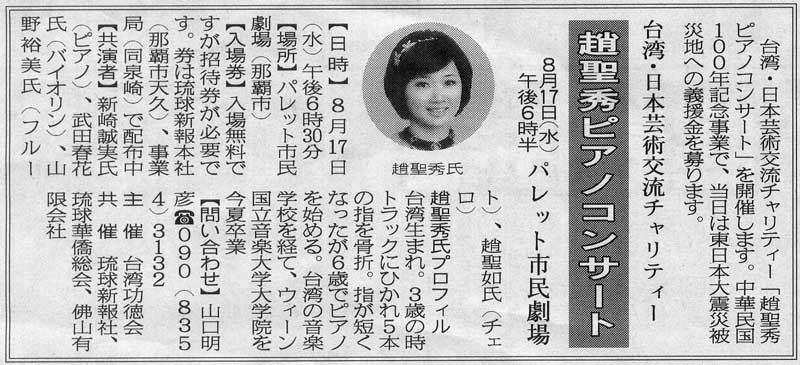 台湾・日本芸術交流チャリティー「趙聖秀
ピアノコンサート」を開催します。中華民国
100年記念事業で、当日は東日本大震災被
災地への義援金を募ります。
台湾・日本芸術交流チャリティー
趙聖秀ピアノコンサート
8月17日(水)
午後6時半
パレット市民劇場
趙聖秀氏
【日時】8月17日
(水)午後6時30分
【場所】パレット市民
劇場(那覇市)
【入場券】入場無料で
すが招待券が必要で
す。券は琉球新報本社
(那覇市天久)、事業
局(同泉崎)で配布中
【共演者】新崎誠実氏
(ピアノ)、武田春花
氏(バイオリン)、山
野裕美氏(フルー
ト)、趙聖如氏(チェ
ロ)
趙聖秀氏プロフィル
台湾生まれ。3歳の時
トラックにひかれ5本
の指を骨折。指が短く
なったが6歳でピアノ
を始める。台湾の音楽
学校を経て、ウィーン
国立音楽大学大学院を
今夏卒業
【問い合わせ】山口明
彦☎090(835
4)3132
主催 台湾功徳会
共催 琉球新報社、
琉球華僑総会、佛山有
限会社